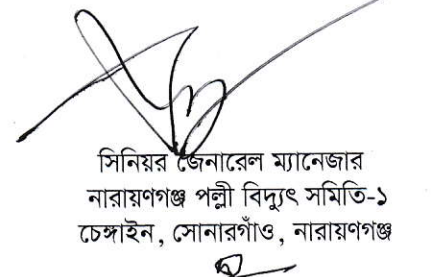 সিনিয়র জেনারেল ম্যানেজার
নারায়ণগঞ্জ পল্লী বিদ্যুৎ সমিতি-১
চেঙ্গাইন, সোনারগাঁও, নারায়ণগঞ্জ